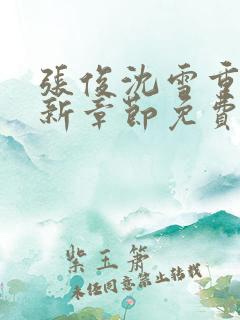 張俊沈雪重
新章節免費
紫玉簫
未经同意禁止转载